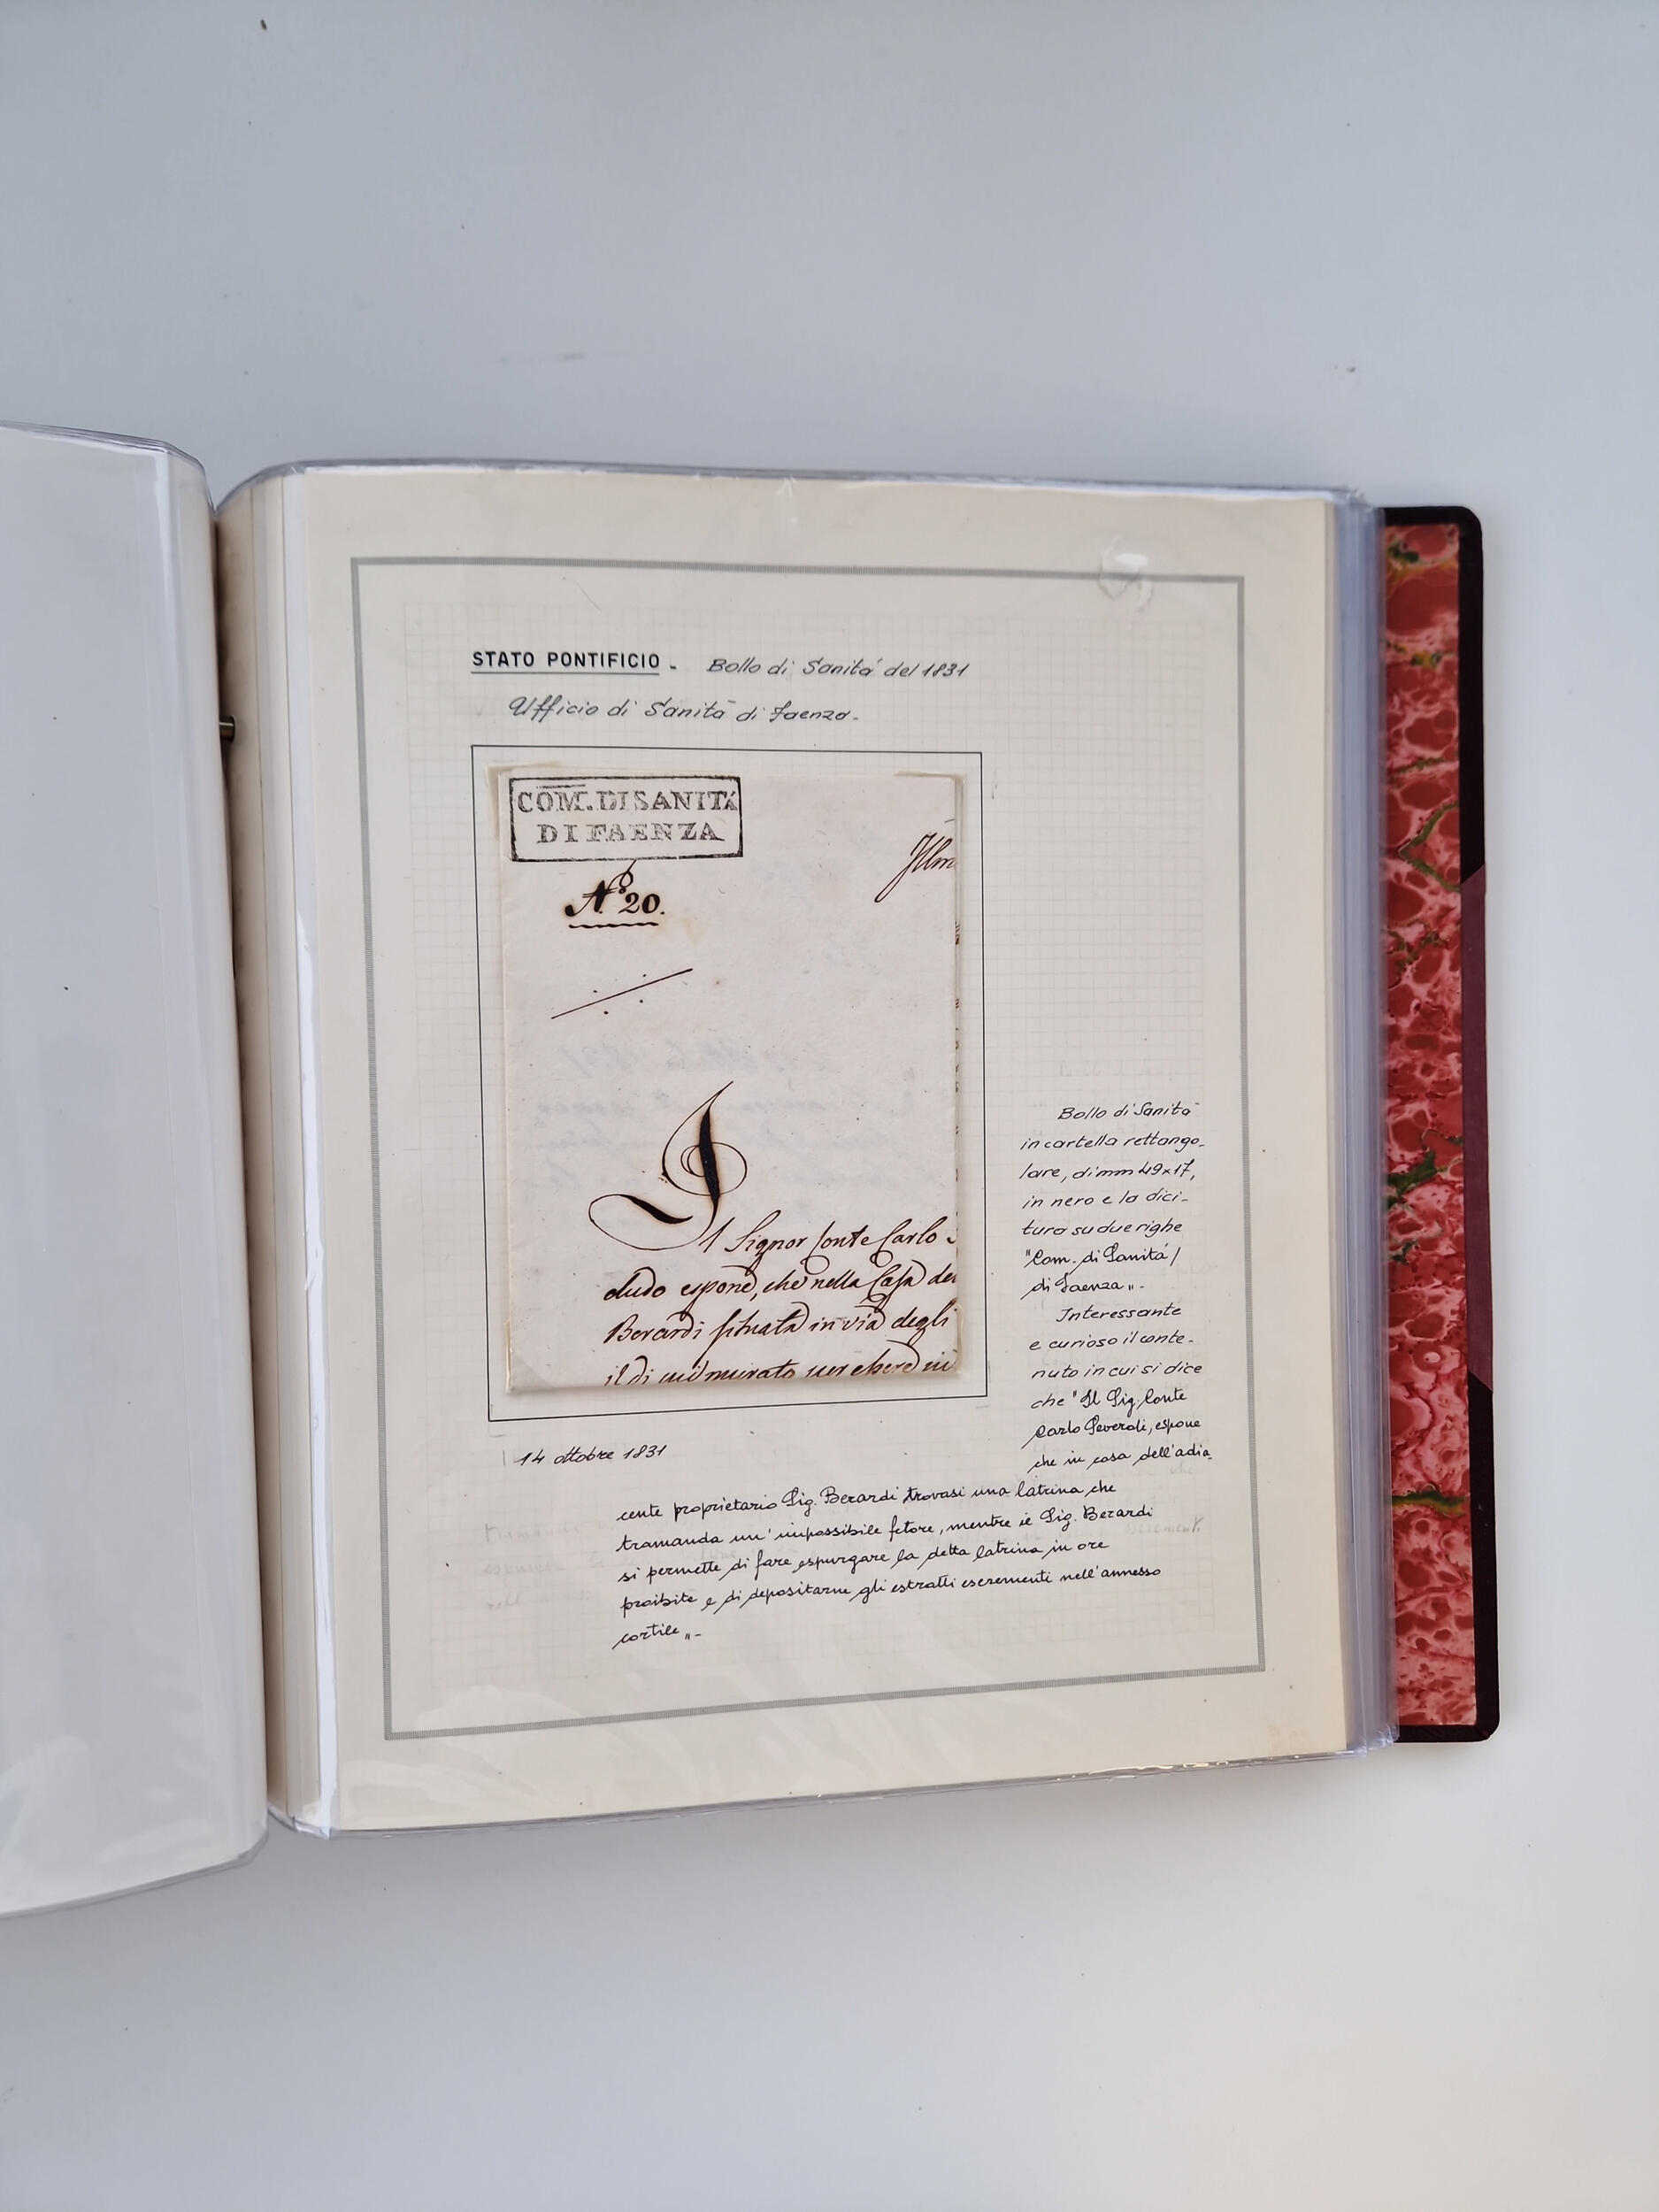 STATO PONTIFICIO - Bollo di Sanitá del 1831
Ufficio di Sanità di Faenza.
COM. DI SANITÁ
DI FAENZA
No. 20.
Illm
Il Signor Conte Carlo
espone, che nella Casa del
Berardi situata in via degli
il di murato per essere
14 ottobre 1831
Bollo di Sanità
in cartella rettango-
lare, di mm 49x17,
in nero e la dici-
tura su due righe
"Com. di Sanitá/
di Faenza".
Interessante
e curioso il conte-
nuto in cui si dice
che "Il Sig. Conte
Carlo Severoli, espone
che in casa dell'adia-
cente proprietario Sig. Berardi trovasi una latrina che
tramanda un'impossibile fetore, mentre il Sig. Berardi
si permette di fare espurgare la detta latrina in ore
proibite e di depositarne gli estratti escrementi nell'annesso
cortile".-